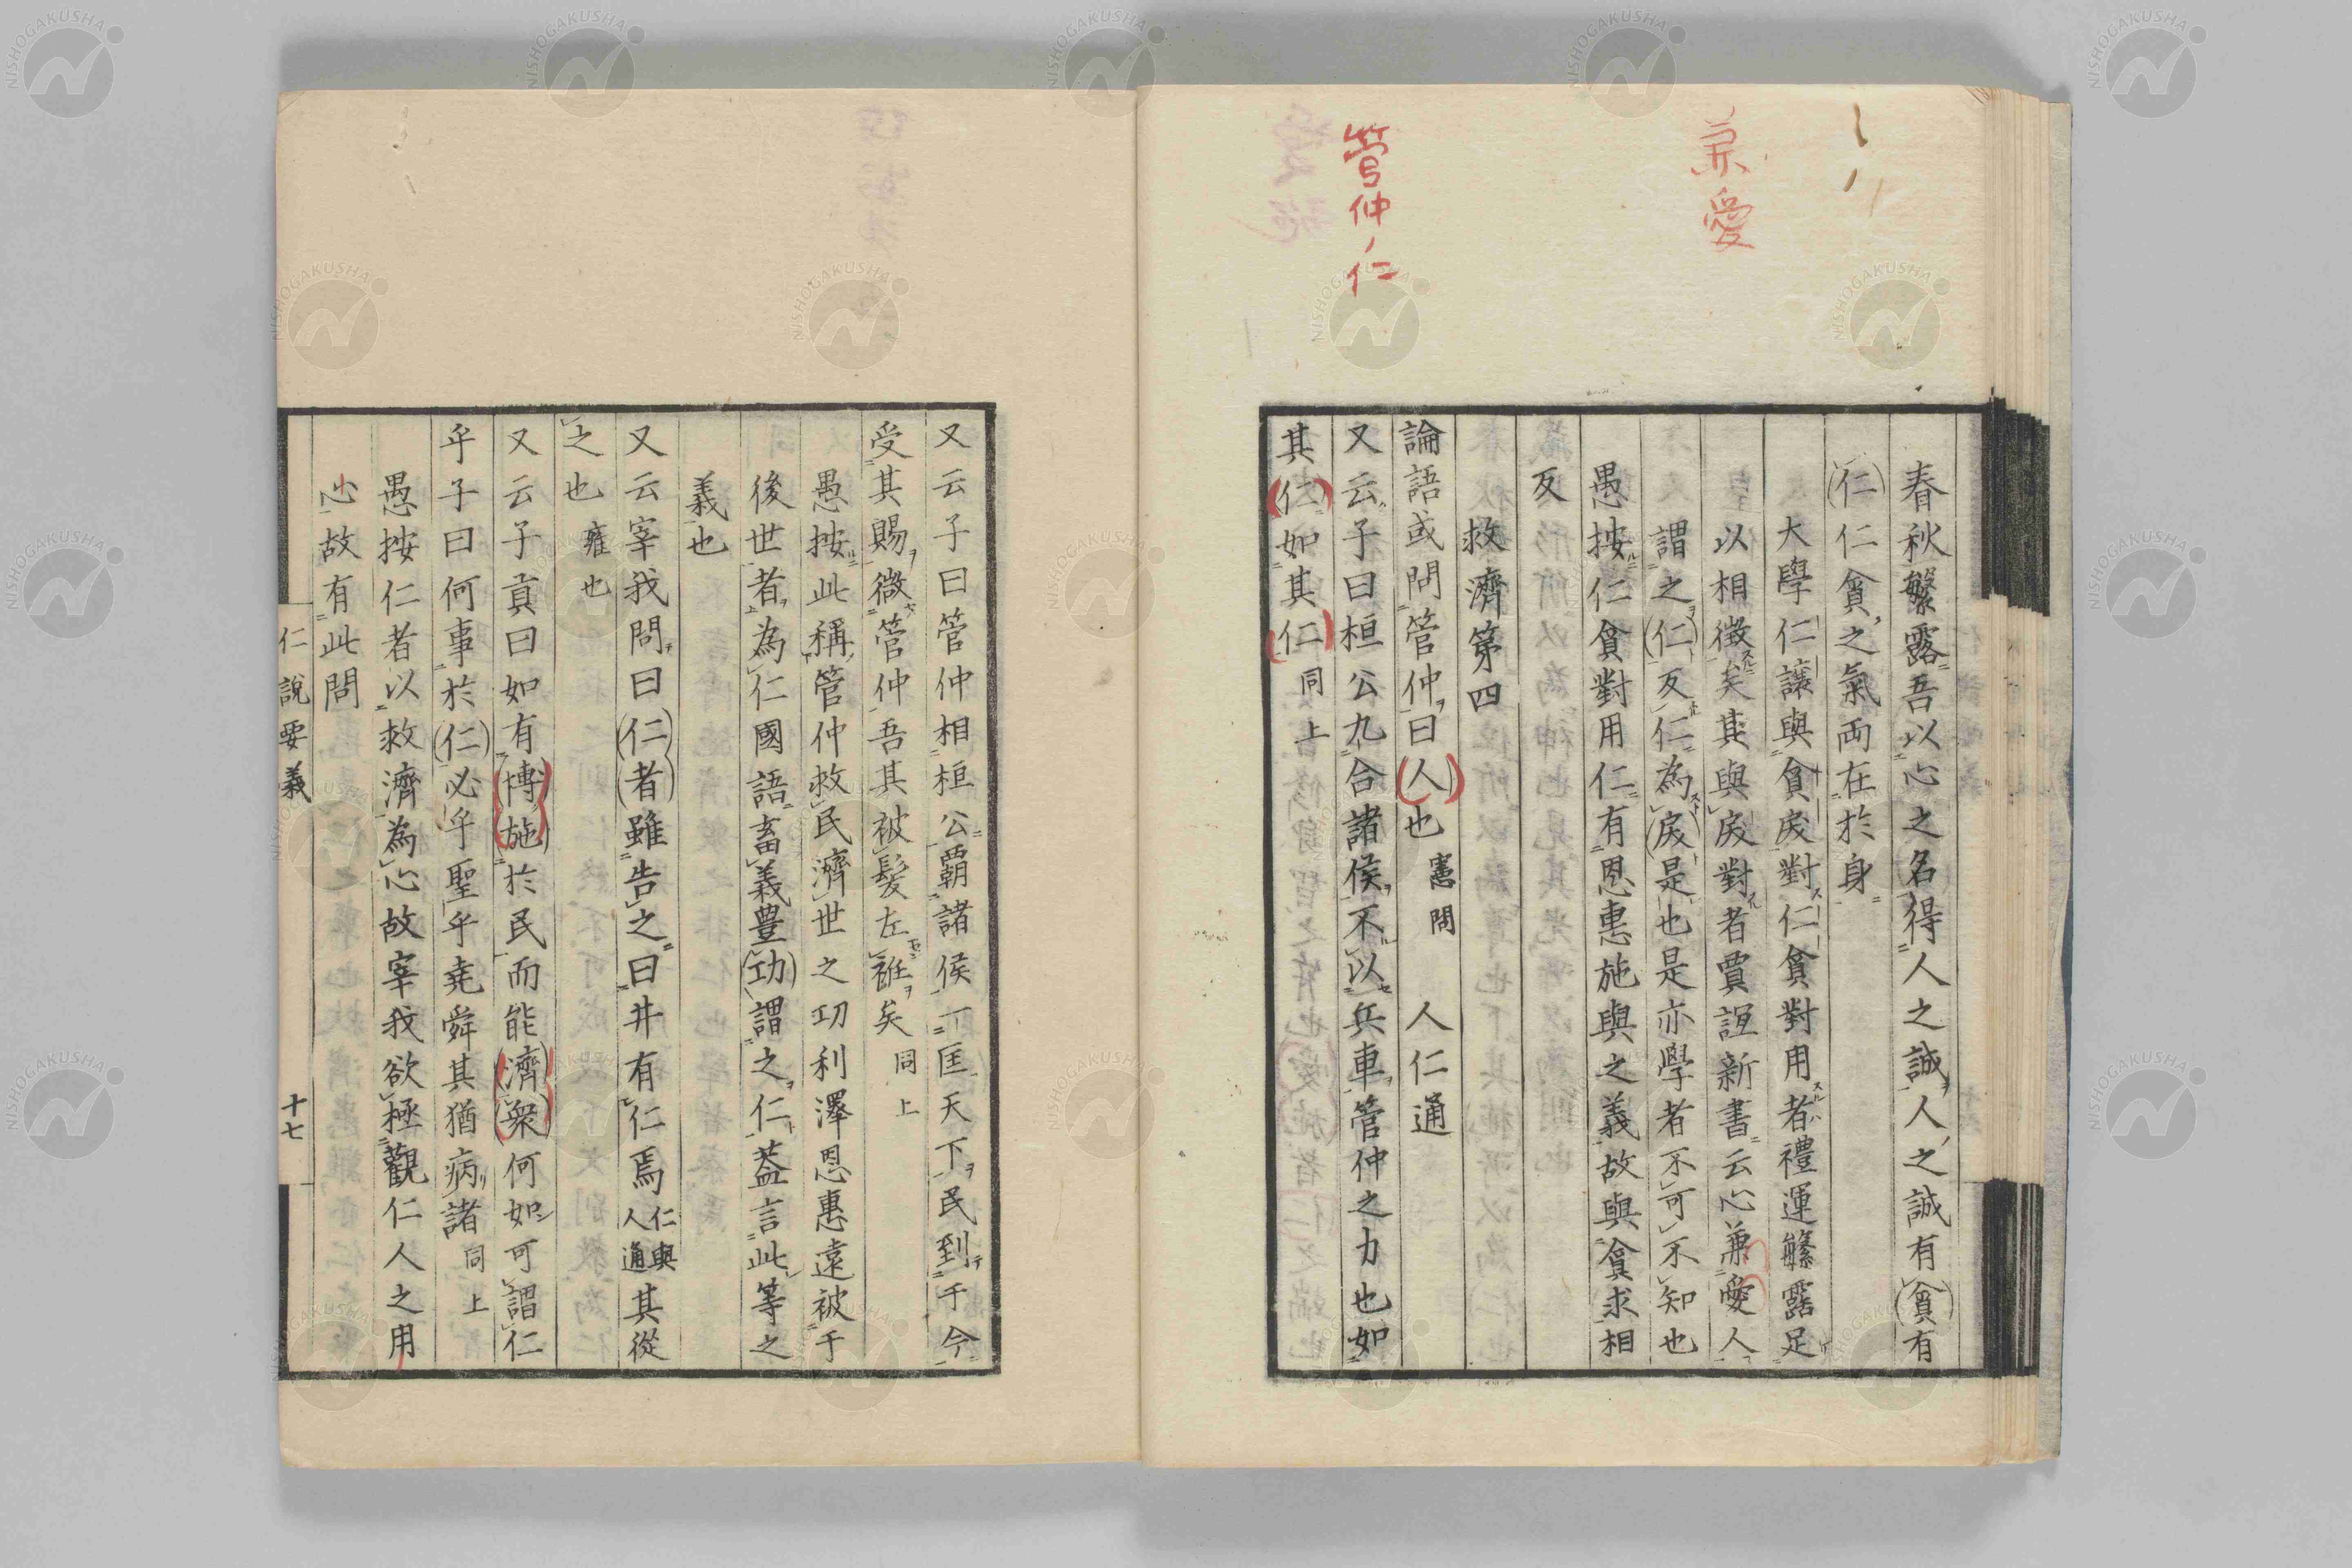 兼愛
管仲ノ仁
春秋繁露吾以心之名得人之誠人之誠有貪有
仁仁貪之氣両在於身
大學仁讓與貪戾對仁貪對用者禮運繁露足
以相徴矣其與戾對者賈誼新書云心兼愛人
謂之仁反仁為戾是也是亦學者不可不知也
愚按仁貪對用仁有恩惠施與之義故與貪求相
反
救濟第四
論語或問管仲曰人也 憲問 人仁通
又云子曰桓公九合諸侯不以兵車管仲之力也如
其仁如其仁 同上
又云子曰管仲相桓公覇諸侯一匡天下民到于今
受其賜微管仲吾其被髮左衽矣 同上
愚按此稱管仲救民濟世之功利澤恩惠遠被于
後世者為仁國語畜義豊功謂之仁葢言此等之
義也
又云宰我問曰仁者雖告之曰井有仁焉 仁與人通 其從
之也 雍也
又云子貢曰如有博施於民而能濟衆何如可謂仁
乎子曰何事於仁必乎聖乎堯舜其猶病諸 同上
愚按仁者以救濟為心故宰我欲極觀仁人之用
心故有此問
仁說要義
十七
NISHOGAKUSHA